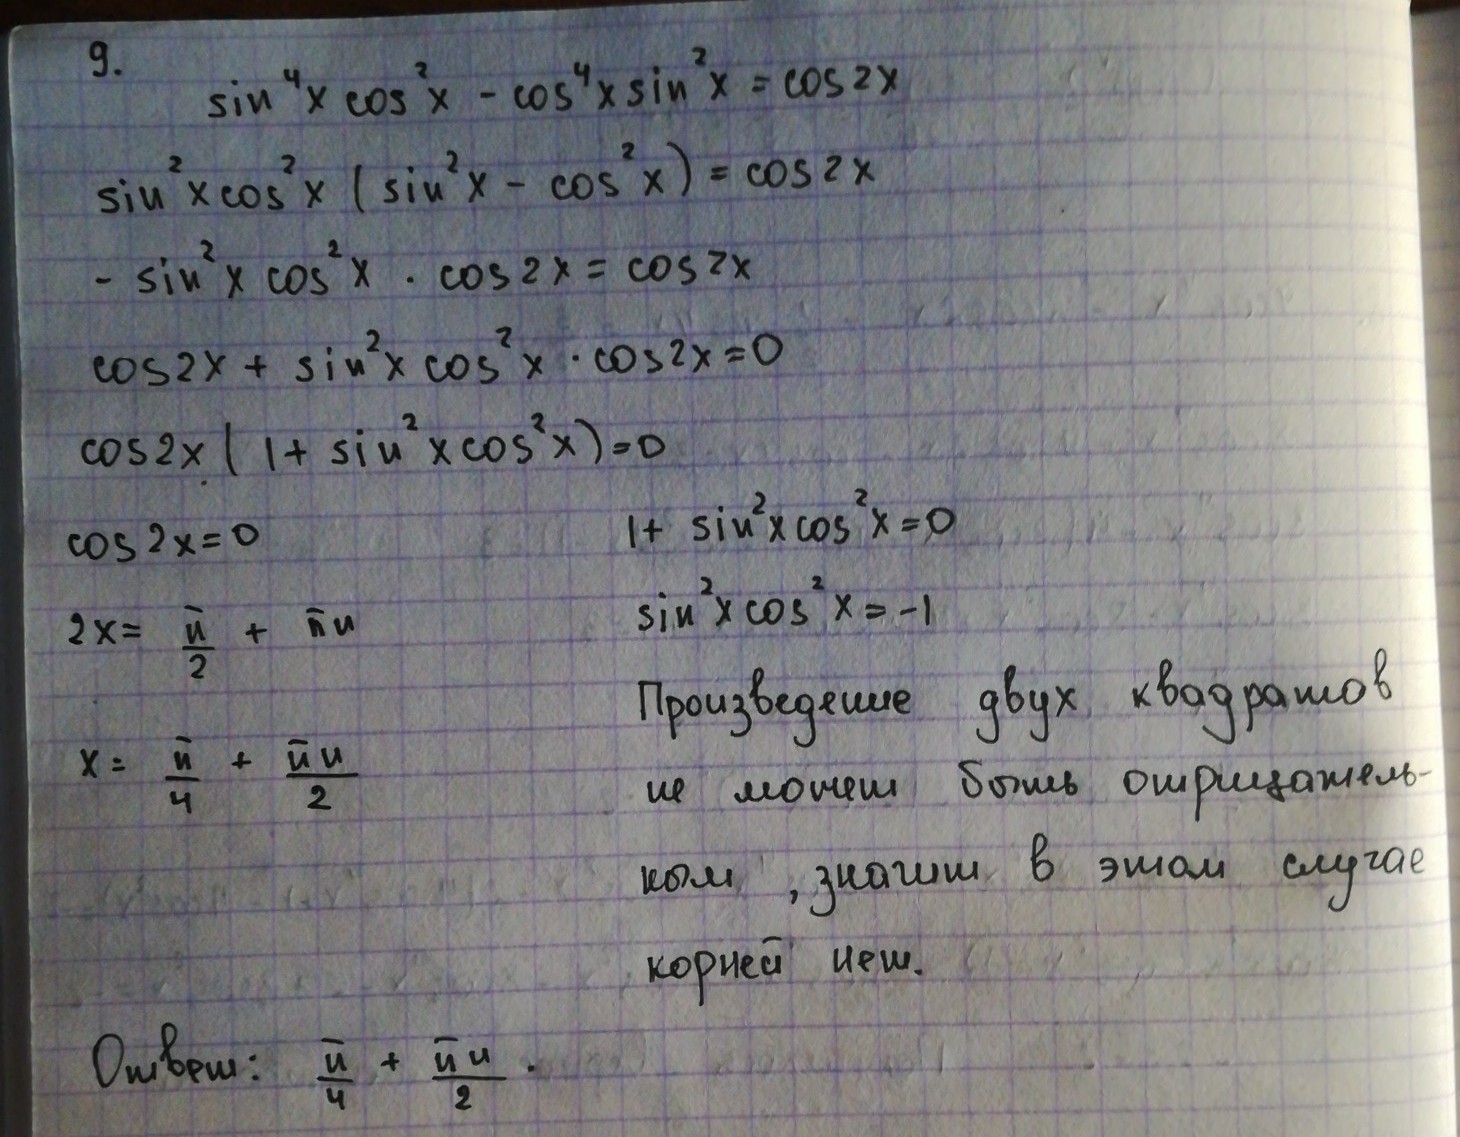 9.
sin⁴x cos²x - cos⁴x sin²x = cos2x
sin²x cos²x (sin²x - cos²x) = cos2x
- sin²x cos²x · cos2x = cos2x
cos2x + sin²x cos²x · cos2x = 0
cos2x (1 + sin²x cos²x) = 0
cos2x = 0
2x = π/2 + πn
x = π/4 + πn/2
1 + sin²x cos²x = 0
sin²x cos²x = -1
Произведение двух квадратов
не может быть отрицатель-
ным, значит в этом случае
корней нет.
Ответ: π/4 + πn/2.